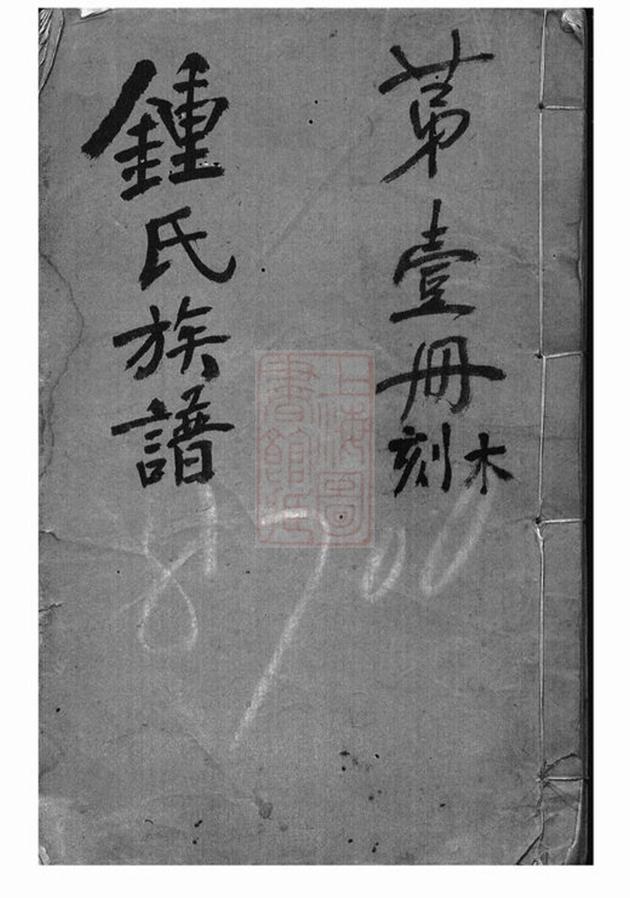 第壹冊
木刻
鍾氏族譜
上海圖書館藏